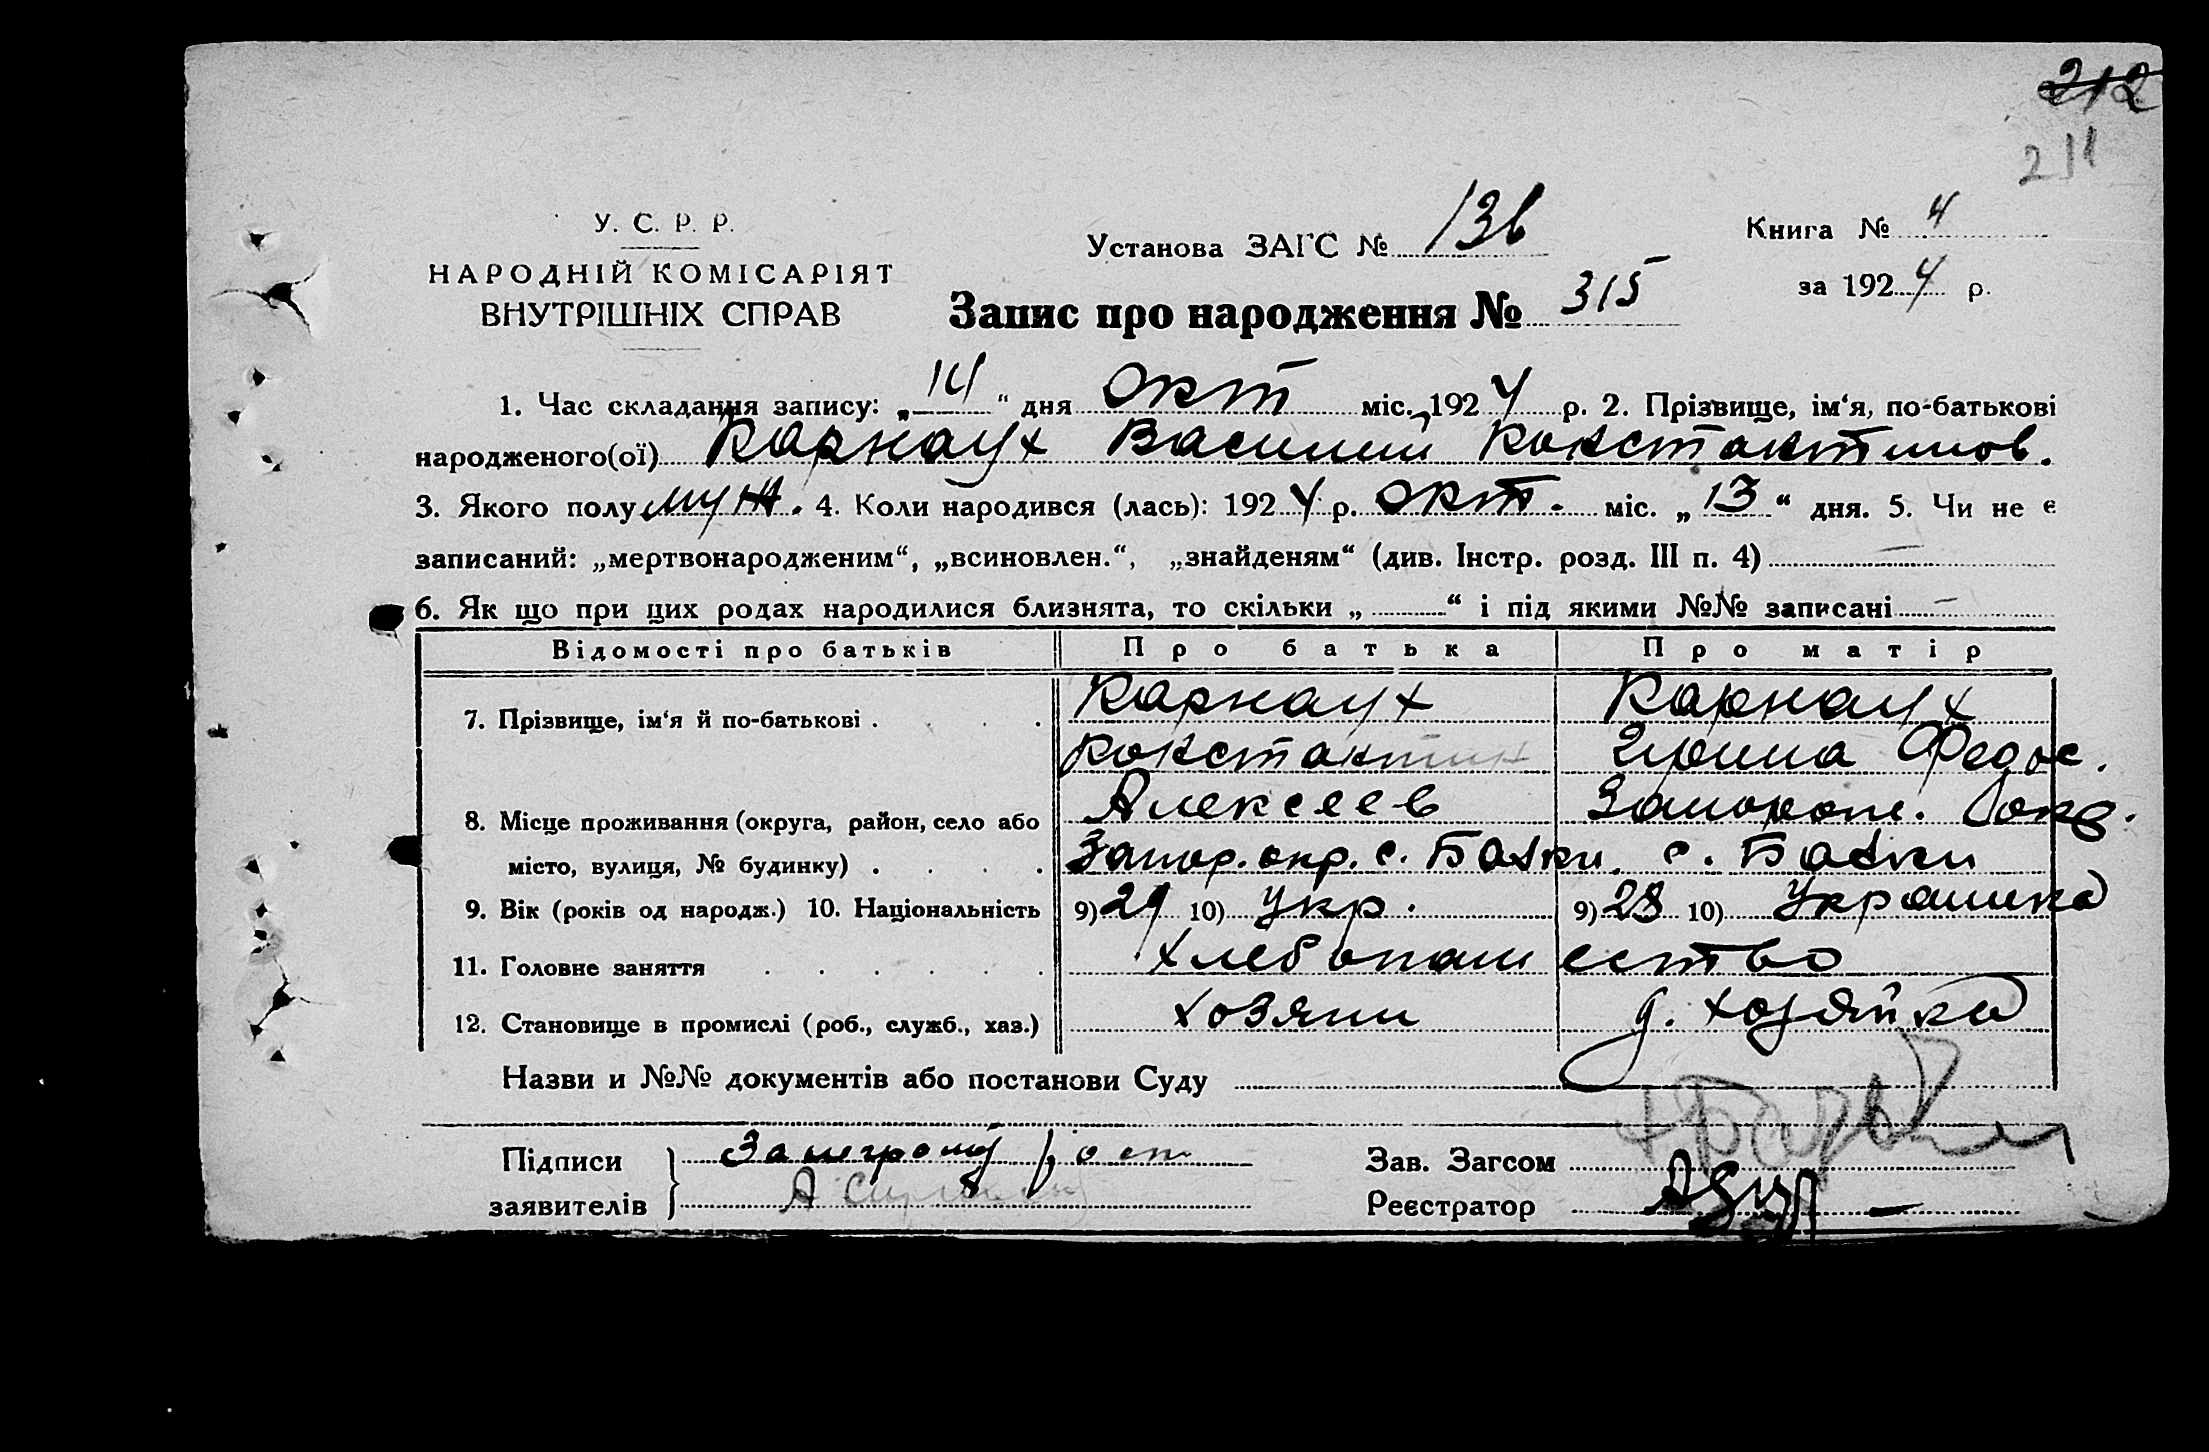 212
211
У. С. Р. Р.
НАРОДНІЙ КОМІСАРІЯТ
ВНУТРІШНІХ СПРАВ
Установа ЗАГС № 136
Книга № 4
за 1924 р.
Запис про народження № 315
1. Час складання запису: „14“ дня Окт міс. 1924 р. 2. Прізвище, ім‘я, по-батькові
народженого(ої) Карнаух Василий Константинов.
3. Якого полу муж. 4. Коли народився (лась): 1924 р. окт. міс. „13“ дня. 5. Чи не є
записаний: „мертвонародженим“, „всиновлен.“, „знайденям“ (див. Інстр. розд. III п. 4) —
6. Як що при цих родах народилися близнята, то скільки „ “ і під якими №№ записані —
Відомості про батьків Про батька Про матір
7. Прізвище, ім‘я й по-батькові . . . Карнаух Карнаух
Константин Ирина Федос.
8. Місце проживання (округа, район, село або Алексеев Запорож. окр.
місто, вулиця, № будинку) . . . . Запор. окр. с. Балки. с. Балки
9. Вік (років од народж.) 10. Національність 9) 29 10) Укр. 9) 28 10) Украинка
11. Головне заняття . . . . . . Хлебопашество
12. Становище в промислі (роб., служб., хаз.) хозяин д. хозяйка
Назви и №№ документів або постанови Суду
Підписи
заявителів
Зав. Загсом
Реєстратор